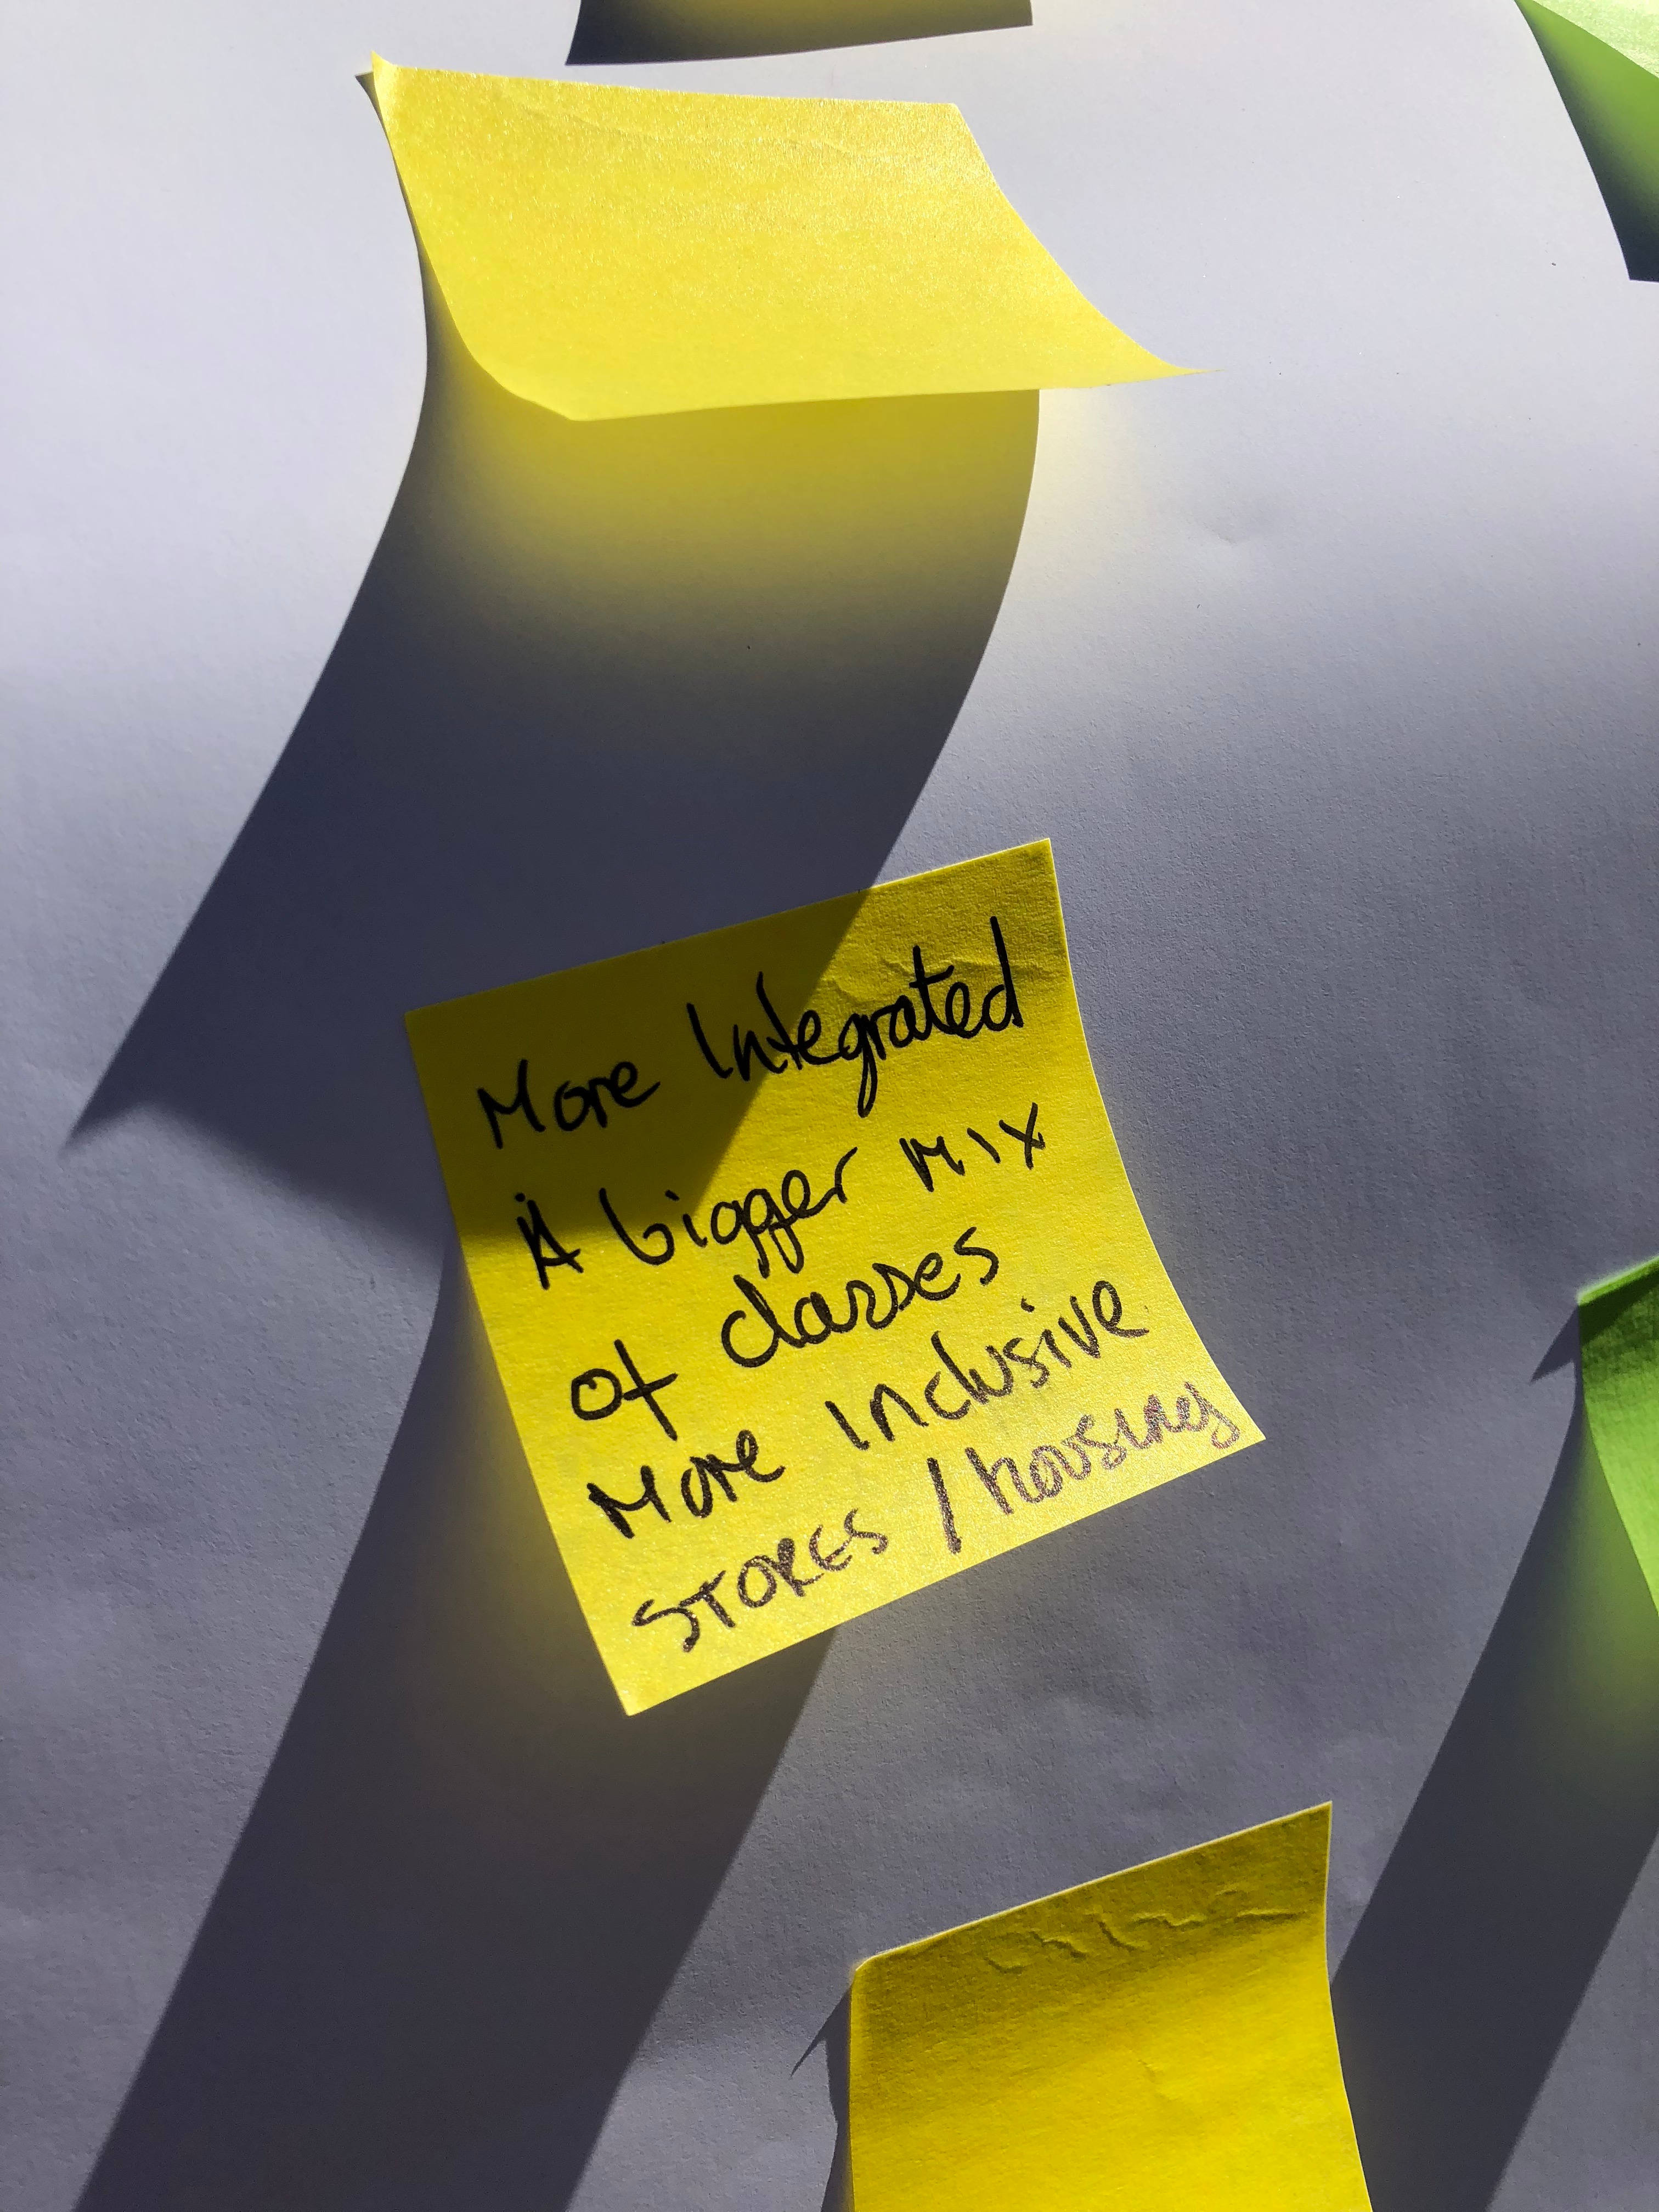 More Integrated
A bigger mix
of classes
More inclusive
STORES / housing